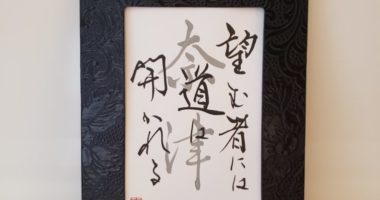 望む者には
道は
開かれる
奈津